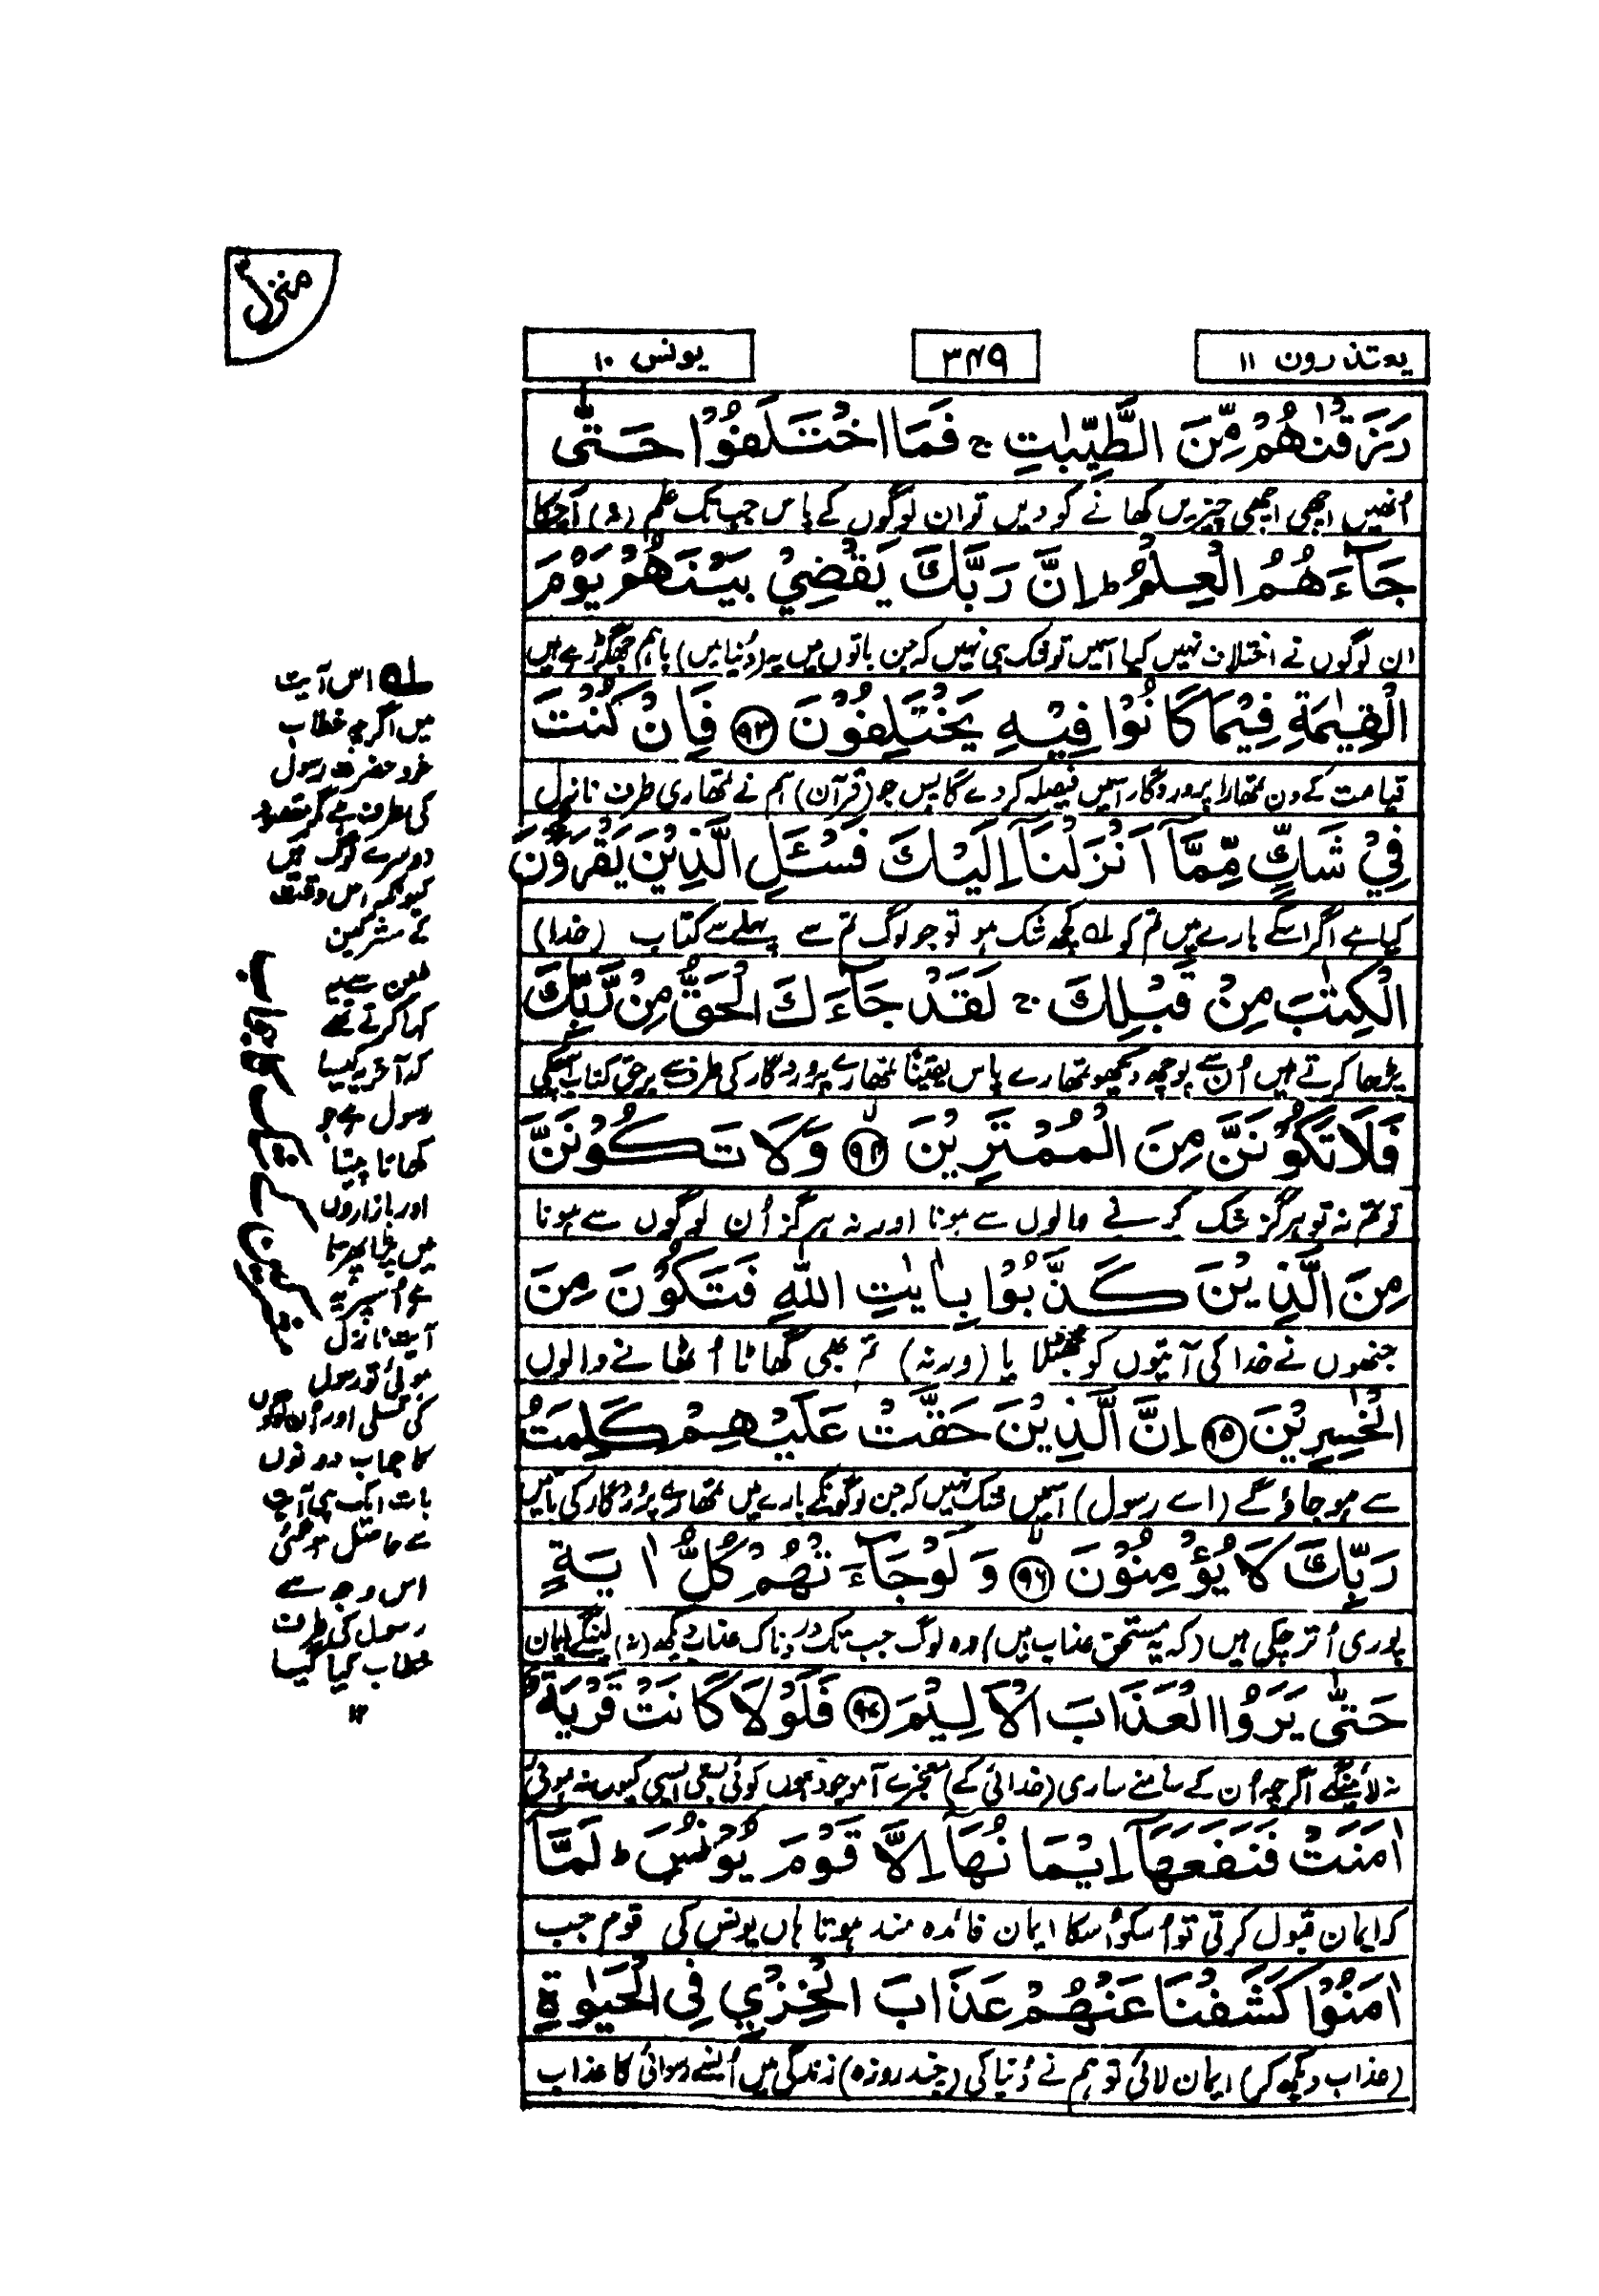 منزل ۳
یعتذرون ۱۱
۳۴۹
یونس ۱۰
رَزَقْنٰهُمْ مِّنَ الطَّیِّبٰتِ ج فَمَا اخْتَلَفُوْا حَتّٰی
اُنھیں اچھی اچھی چیزیں کھانے کو دیں تو ان لوگوں کے پاس جب تک علم (نہ) آچکا
جَآءَهُمُ الْعِلْمُ ط اِنَّ رَبَّكَ یَقْضِیْ بَیْنَهُمْ یَوْمَ
ان لوگوں نے اختلاف نہیں کیا اسمیں تو شک ہی نہیں کہ جن باتوں میں یہ (دُنیا میں) باہم جھگڑ رہے ہیں
الْقِیٰمَةِ فِیْمَا كَانُوْا فِیْهِ یَخْتَلِفُوْنَ ۹۳ فَاِنْ كُنْتَ
قیامت کے دن تمھارا پروردگار اسمیں فیصلہ کردے گا پس جو (قرآن) ہم نے تمھاری طرف نازل
فِیْ شَكٍّ مِّمَّآ اَنْزَلْنَآ اِلَیْكَ فَسْـَٔلِ الَّذِیْنَ یَقْرَءُوْنَ
کیا ہے اگر اسکے بارے میں تم کو ۵۱ کچھ شک ہو تو جو لوگ تم سے پہلے سے کتاب (خدا)
الْكِتٰبَ مِنْ قَبْلِكَ ج لَقَدْ جَآءَكَ الْحَقُّ مِنْ رَّبِّكَ
پڑھا کرتے ہیں اُن سے پوچھ دیکھو تمھارے پاس یقیناً تمھارے پروردگار کی طرف سے برحق کتاب آچکی
فَلَا تَكُوْنَنَّ مِنَ الْمُمْتَرِیْنَ ۹۴ وَلَا تَكُوْنَنَّ
تو تم نہ تو ہرگز شک کرنے والوں سے ہونا اور نہ ہرگز اُن لوگوں سے ہونا
مِنَ الَّذِیْنَ كَذَّبُوْا بِاٰیٰتِ اللّٰهِ فَتَكُوْنَ مِنَ
جنھوں نے خدا کی آیتوں کو جھٹلایا (ورنہ) تم بھی گھاٹا اُٹھانے والوں
الْخٰسِرِیْنَ ۹۵ اِنَّ الَّذِیْنَ حَقَّتْ عَلَیْهِمْ كَلِمَتُ
سے ہوجاؤ گے (اے رسول) اسمیں شک نہیں کہ جن لوگونکے بارے میں تمھارے پروردگار کی باتیں
رَبِّكَ لَا یُؤْمِنُوْنَ ۹۶ وَلَوْ جَآءَتْهُمْ كُلُّ اٰیَةٍ
پوری اُتر چکی ہیں (کہ یہ مستحق عذاب ہیں) وہ لوگ جب تک دردناک عذاب دیکھ (نہ) لینگے ایمان
حَتّٰی یَرَوُا الْعَذَابَ الْاَلِیْمَ ۹۷ فَلَوْلَا كَانَتْ قَرْیَةٌ
نہ لائینگے اگرچہ اُن کے سامنے ساری (خدائی کے) معجزے آموجود ہوں کوئی بستی ایسی کیوں نہ ہوئی
اٰمَنَتْ فَنَفَعَهَآ اِیْمَانُهَآ اِلَّا قَوْمَ یُوْنُسَ ط لَمَّآ
کہ ایمان قبول کرتی تو اُسکو اُسکا ایمان فائدہ مند ہوتا ہاں یونس کی قوم جب
اٰمَنُوْا كَشَفْنَا عَنْهُمْ عَذَابَ الْخِزْیِ فِی الْحَیٰوةِ
(عذاب دیکھ کر) ایمان لائی تو ہم نے دُنیا کی (چند روزہ) زندگی میں اُنسے رسوائی کا عذاب
۵۱ اس آیت
میں اگرچہ خطاب
خود حضرت رسول
کی طرف ہے مگر مقصود
دوسرے لوگ ہیں
کیونکہ اس وقت
کے مشرکین
طعن سے یہ
کہا کرتے تھے
کہ آخر یہ کیسا
رسول ہے جو
کھاتا پیتا
اور بازاروں
میں پڑا پھرتا
ہے اُسپر یہ
آیت نازل
ہوئی تو رسول
کی تسلی اور اُن لوگوں
کا جواب دونوں
بات ایک ہی آیت
سے حاصل ہوگئی
اس وجہ سے
رسول کی طرف
خطاب کیا گیا
۱۲
مشرکین کے کا جواب